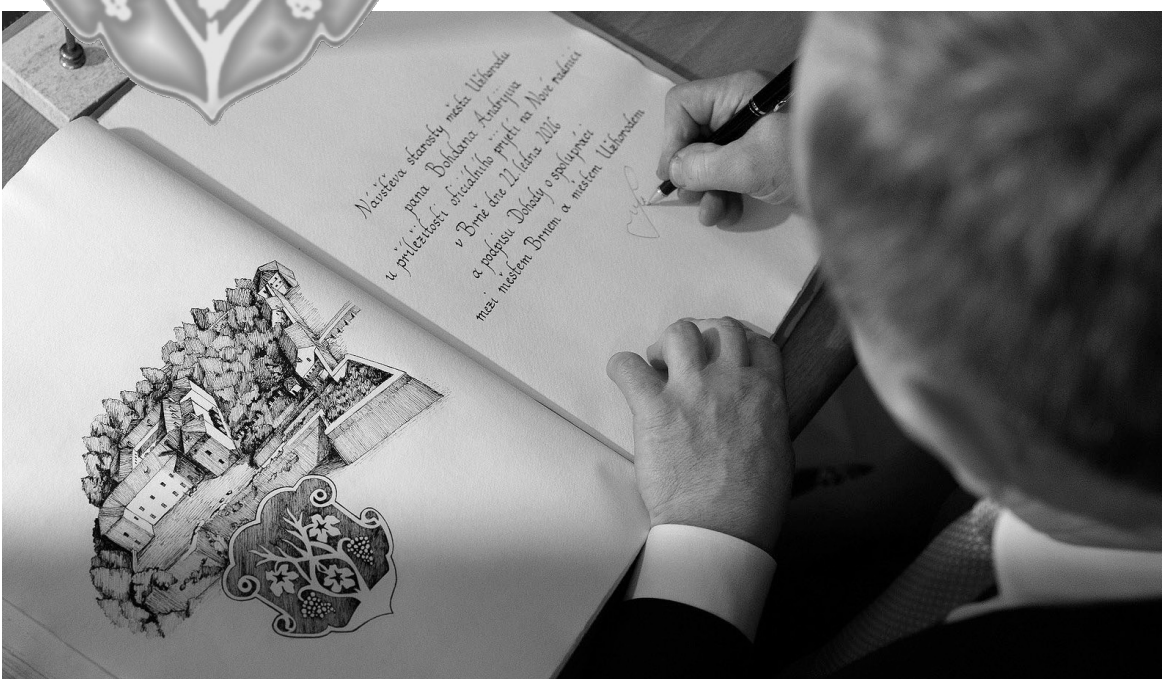 Návštěva starosty města Užhorodu
pana Bohdana Andrijiva
u příležitosti oficiálního přijetí na Nové radnici
v Brně dne 22. ledna 2026
a podpisu Dohody o spolupráci
mezi městem Brnem a městem Užhorodem